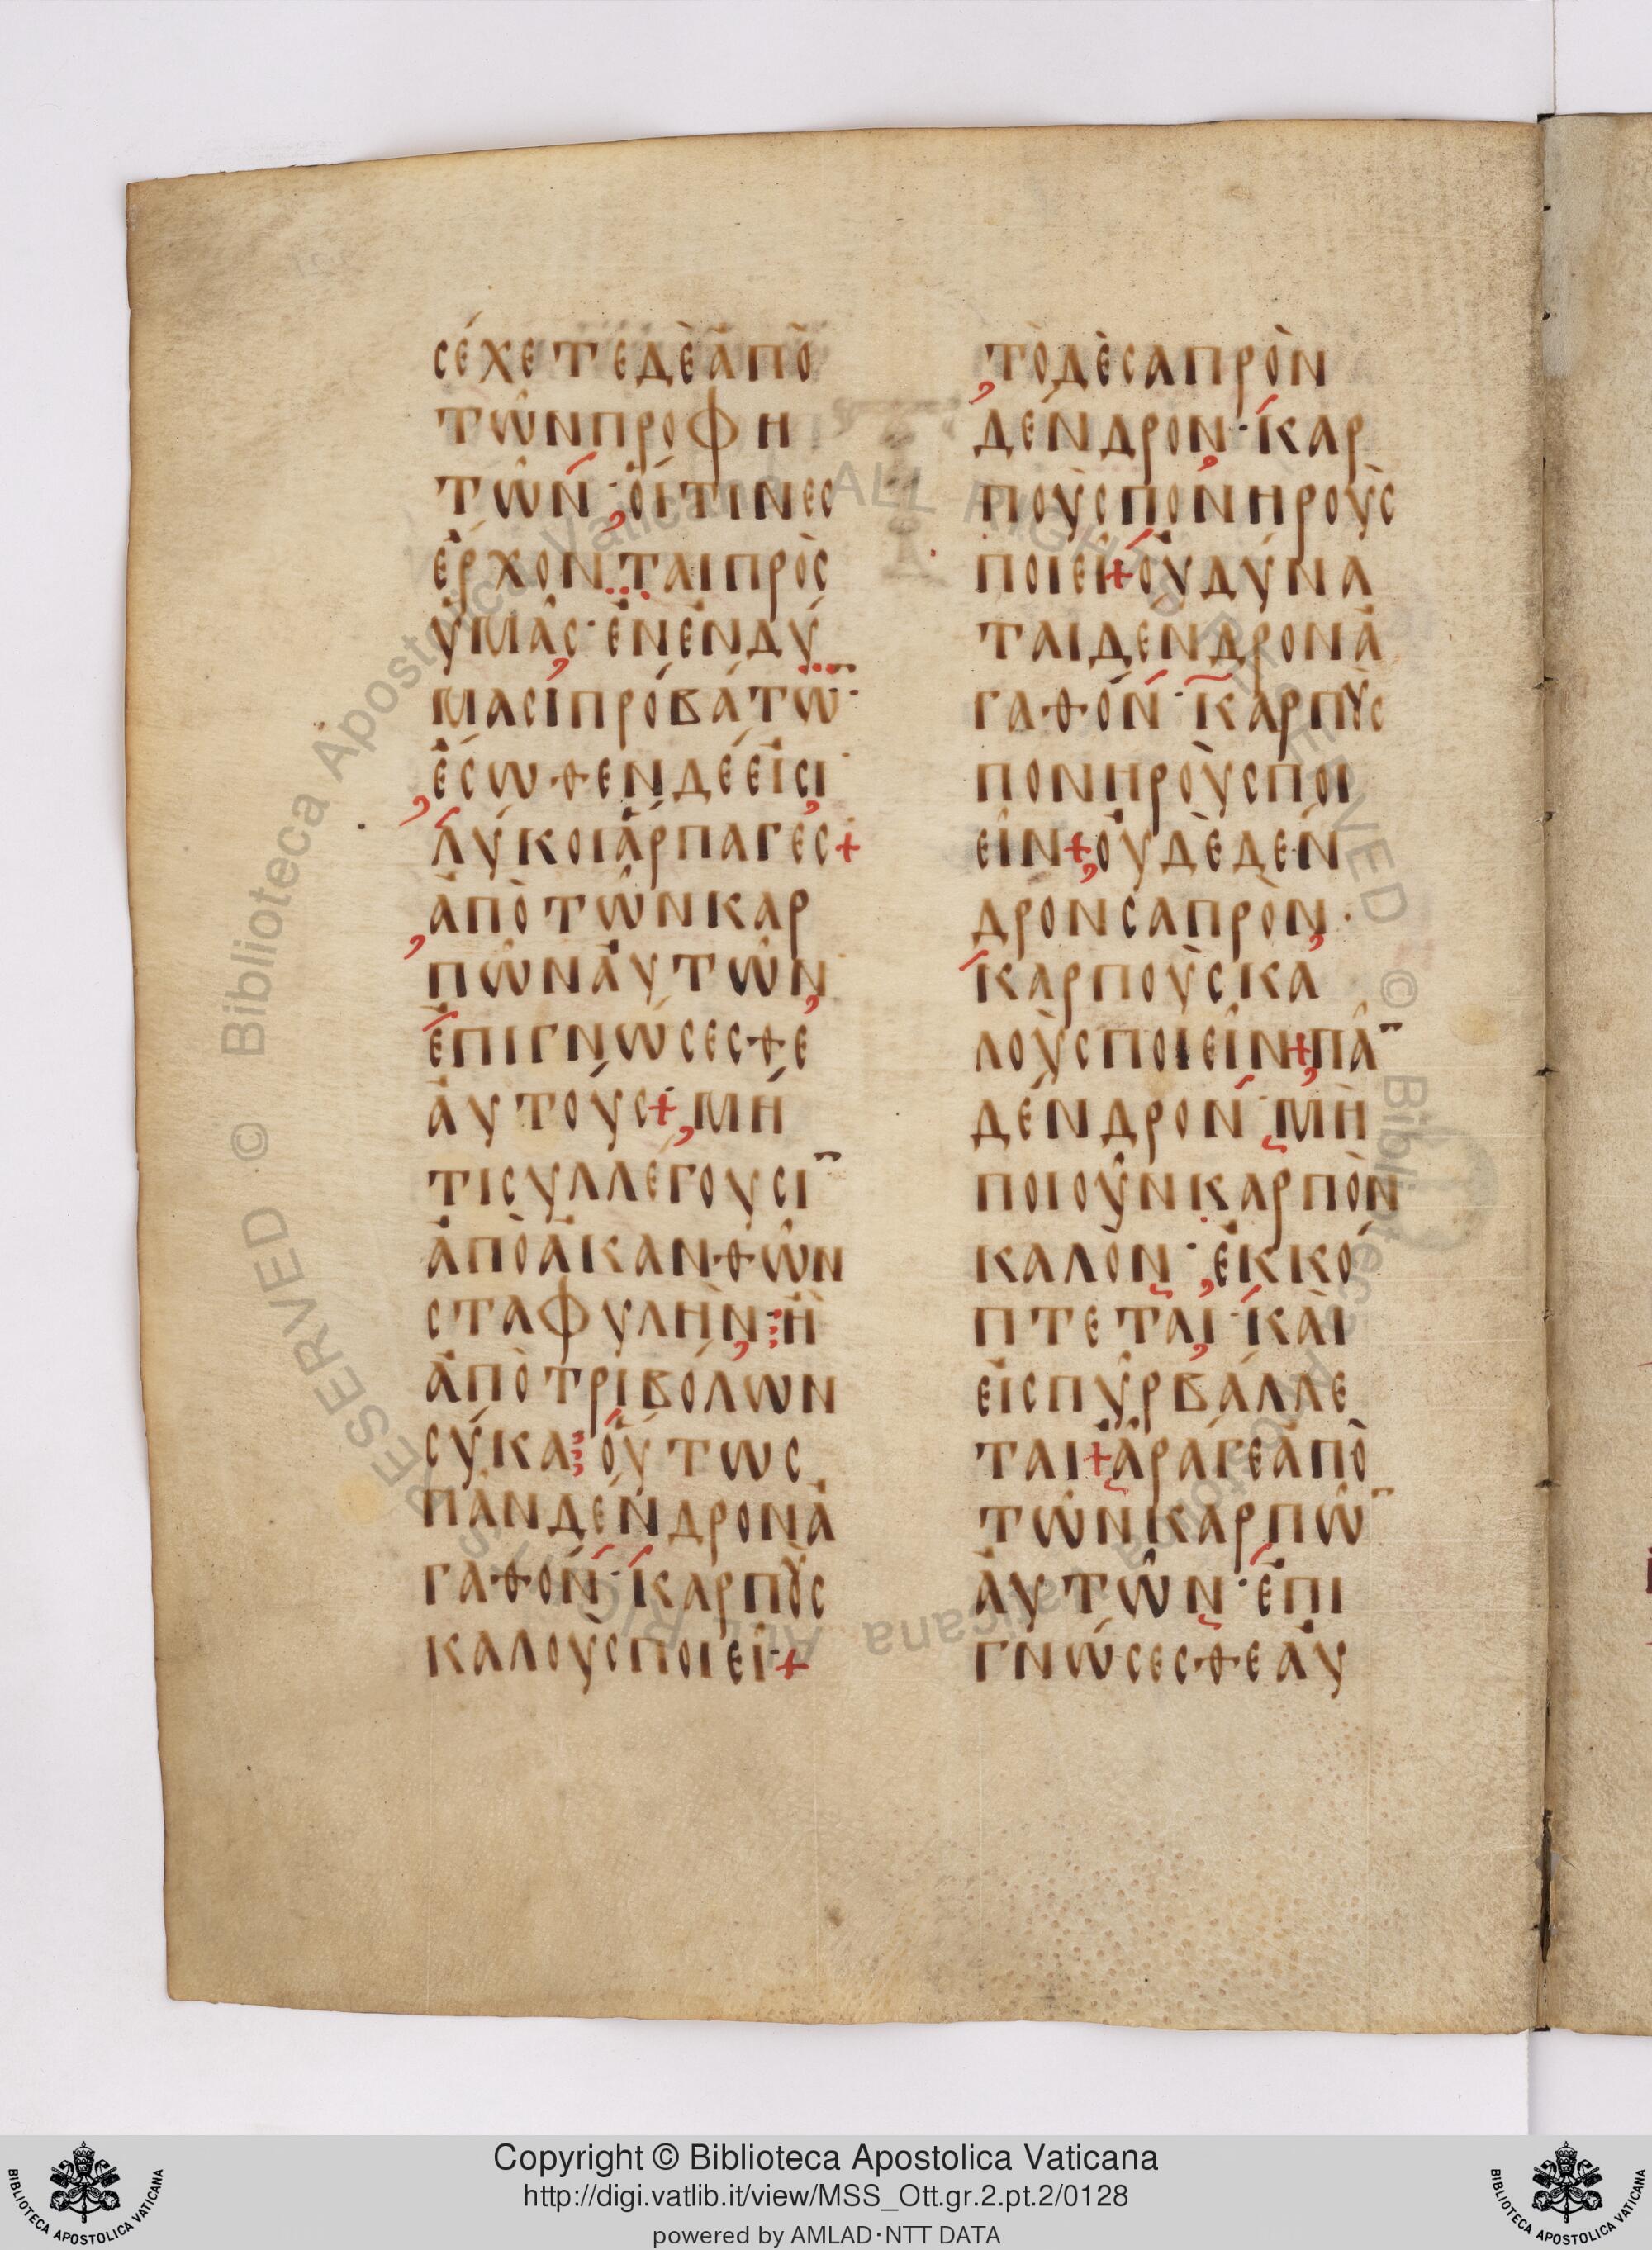 ϲέχετεδὲἀπὸ
τῶνπροφη
τῶν·οἵτινεϲ
ἔρχονταιπρὸϲ
ὑμᾶϲ·ἐνἐνδύ
μαϲιπροβάτω̅·
ἔϲωθενδέεἰϲι·
λύκοιἅρπαγεϲ+
ἀπὸτῶνκαρ
πῶναὐτῶν·
ἐπιγνώϲεϲθε
ἀυτούϲ+μή
τιϲυλλέγουϲι̅
ἀπὸἀκανθῶν
ϲταφυλὴν·ἢ
ἀπὸτριβόλων
ϲύκα·οὕτωϲ
πᾶνδένδρονἀ
γαθόν·καρπȣ̀ϲ
καλοὺϲποιεῖ·+
τὸδὲϲαπρὸν
δένδρον·καρ
ποὺϲπονηροὺϲ
ποιεῖ+οὐδύνα
ταιδένδρονἀ
γαθόν·καρπȣϲ
πονηροὺϲποι
εῖν+οὐδὲδέν
δρονϲαπρὸν·
καρποὺϲκα
λοὺϲποιεῖν+πᾶ̅
δένδρον·μὴ
ποιοῦνκαρπὸν
καλὸν·ἐκκό
πτεται·καὶ
εἰϲπῦρβάλλε
ται+ἄραγεἀπὸ
τῶνκαρπῶ̅
ἀυτῶν·ἐπι
γνώϲεϲθεἀυ
Copyright © Biblioteca Apostolica Vaticana
http://digi.vatlib.it/view/MSS_Ott.gr.2.pt.2/0128
powered by AMLAD·NTT DATA
BIBLIOTECA APOSTOLICA VATICANA
BIBLIOTECA APOSTOLICA VATICANA